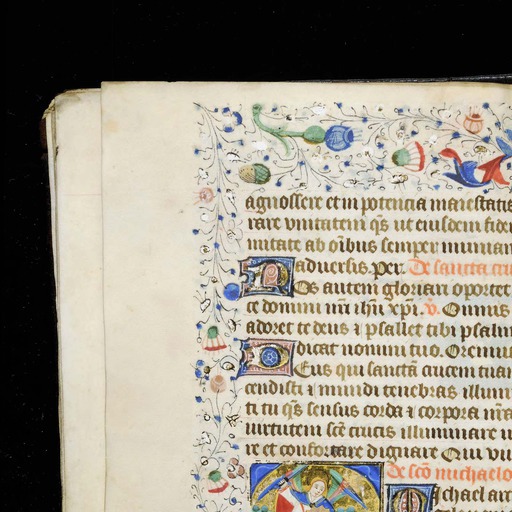 agnoscere et in potencia maiestatis
rare vnitatem qs ut eiusdem fidei
mitate ab oibus semper muniam
aduersis. per. De sancta cru
Nos autem gloriari oportet
ce domini nri ihu xpi. v. Omnis
adoret te deus ⁊ psallet tibi psalm
dicat nomini tuo. Oremus
Deus qui sanctã crucem tuam
cendisti ⁊ mundi tenebras illum
ti tu qs sensus corda ⁊ corpora nra
uirtutem scẽ crucis illuminare
re et confortare dignare Qui vi
de scõ michaelo
Michael arc